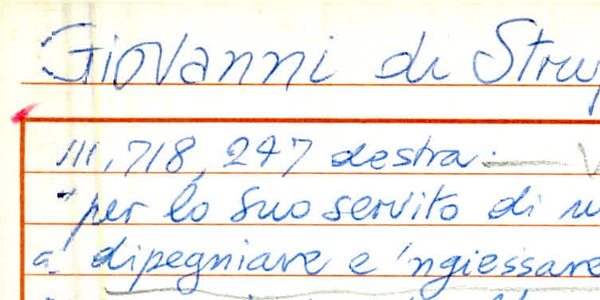 Giovanni di Stru
III, 718, 247 destra.
"per lo suo servito di
a' dipegniare e 'ngiessare